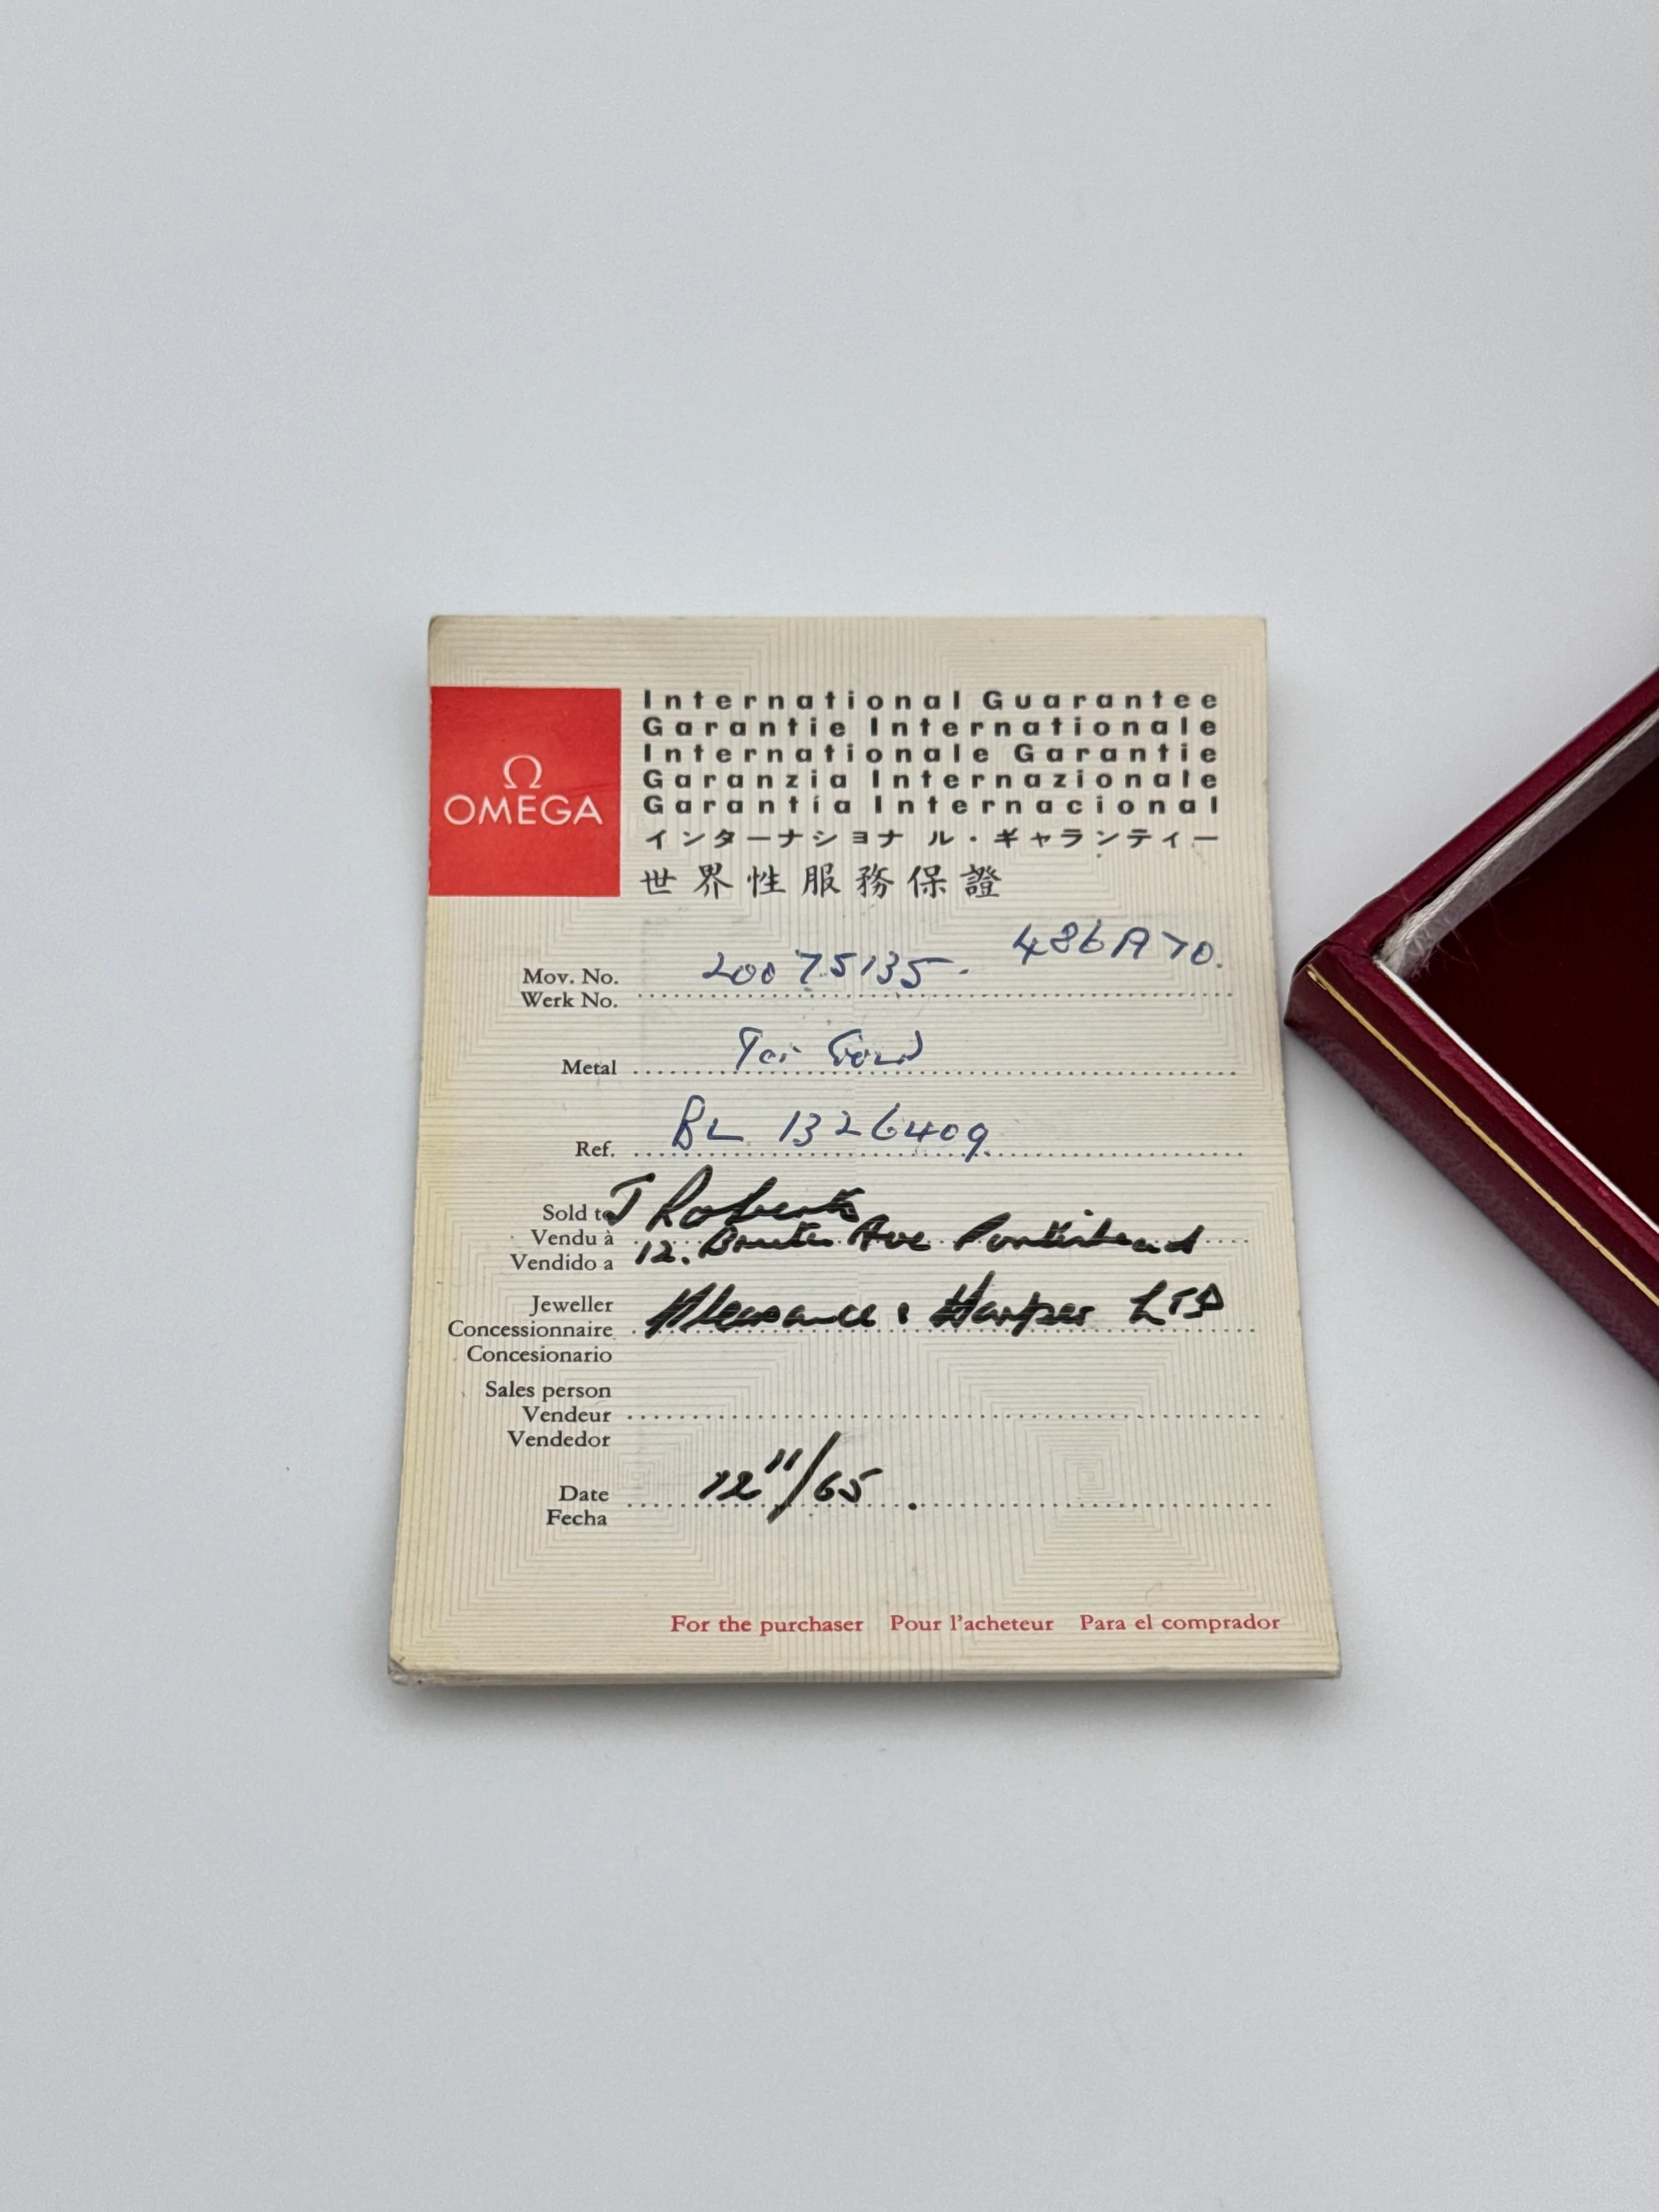 Ω
OMEGA
International Guarantee
Garantie Internationale
Internationale Garantie
Garanzia Internazionale
Garantía Internacional
インターナショナル・ギャランティー
世界性服務保證
486A70.
Mov. No. 20075135.
Werk No.
Metal 9ct Gold
Ref. BL 1326409
Sold to J Roberts
Vendu à 12. Ave Portishead
Vendido a
Jeweller
Concessionnaire Pleasance & Harper LTD
Concesionario
Sales person
Vendeur
Vendedor
Date 12"/65.
Fecha
For the purchaser Pour l'acheteur Para el comprador